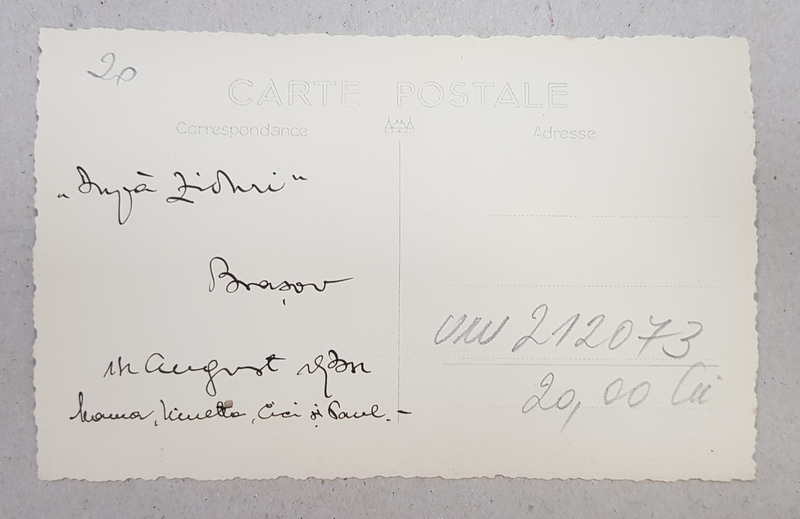 20
CARTE POSTALE
Correspondance
Adresse
„După Ziduri"
Brașov
August
Mama, Cici și Paul.-
212073
20,00 lei